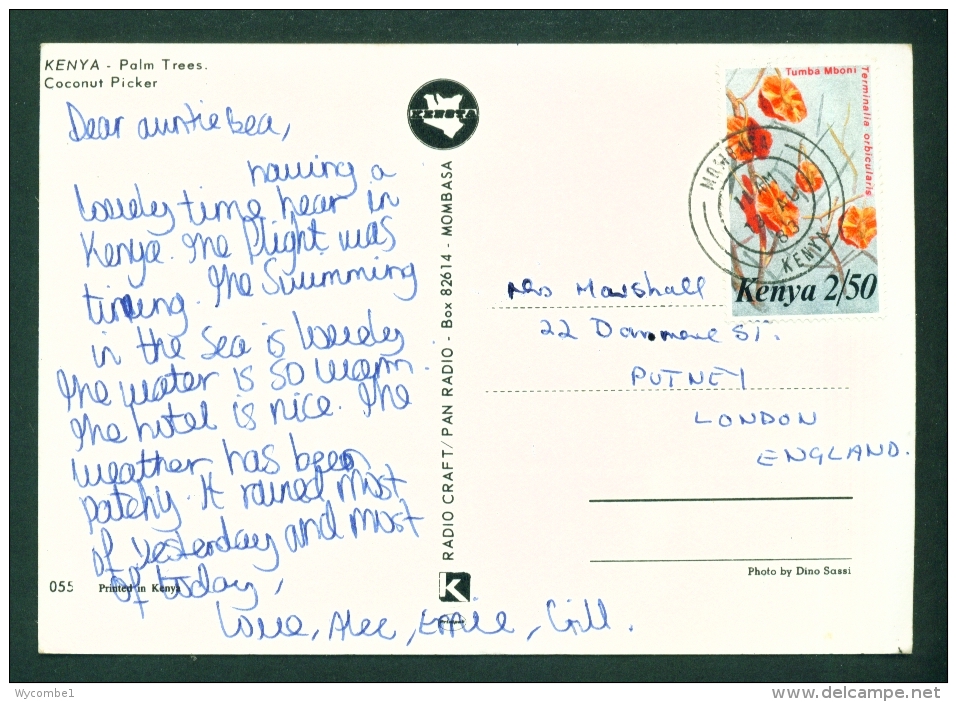 KENYA - Palm Trees.
Coconut Picker
Dear auntie bea,
having a
lovely time hear in
Kenya. The flight was
tiring. The Swimming
in the Sea is lovely
The water is so warm.
The hotel is nice. The
weather has been
patchy. It rained most
of yesterday and most
of today,
Love, Alec, Effie, Gill.
055 Printed in Kenya
KENSTA
RADIO CRAFT/PAN RADIO - Box 82614 - MOMBASA
K
Tumba Mboni
Terminalia orbicularis
Kenya 2/50
MOMBASA
11 AM
KENYA
Mrs Marshall
22 ST.
PUTNEY
LONDON
ENGLAND.
Photo by Dino Sassi
Wycombe1
www.delcampe.net